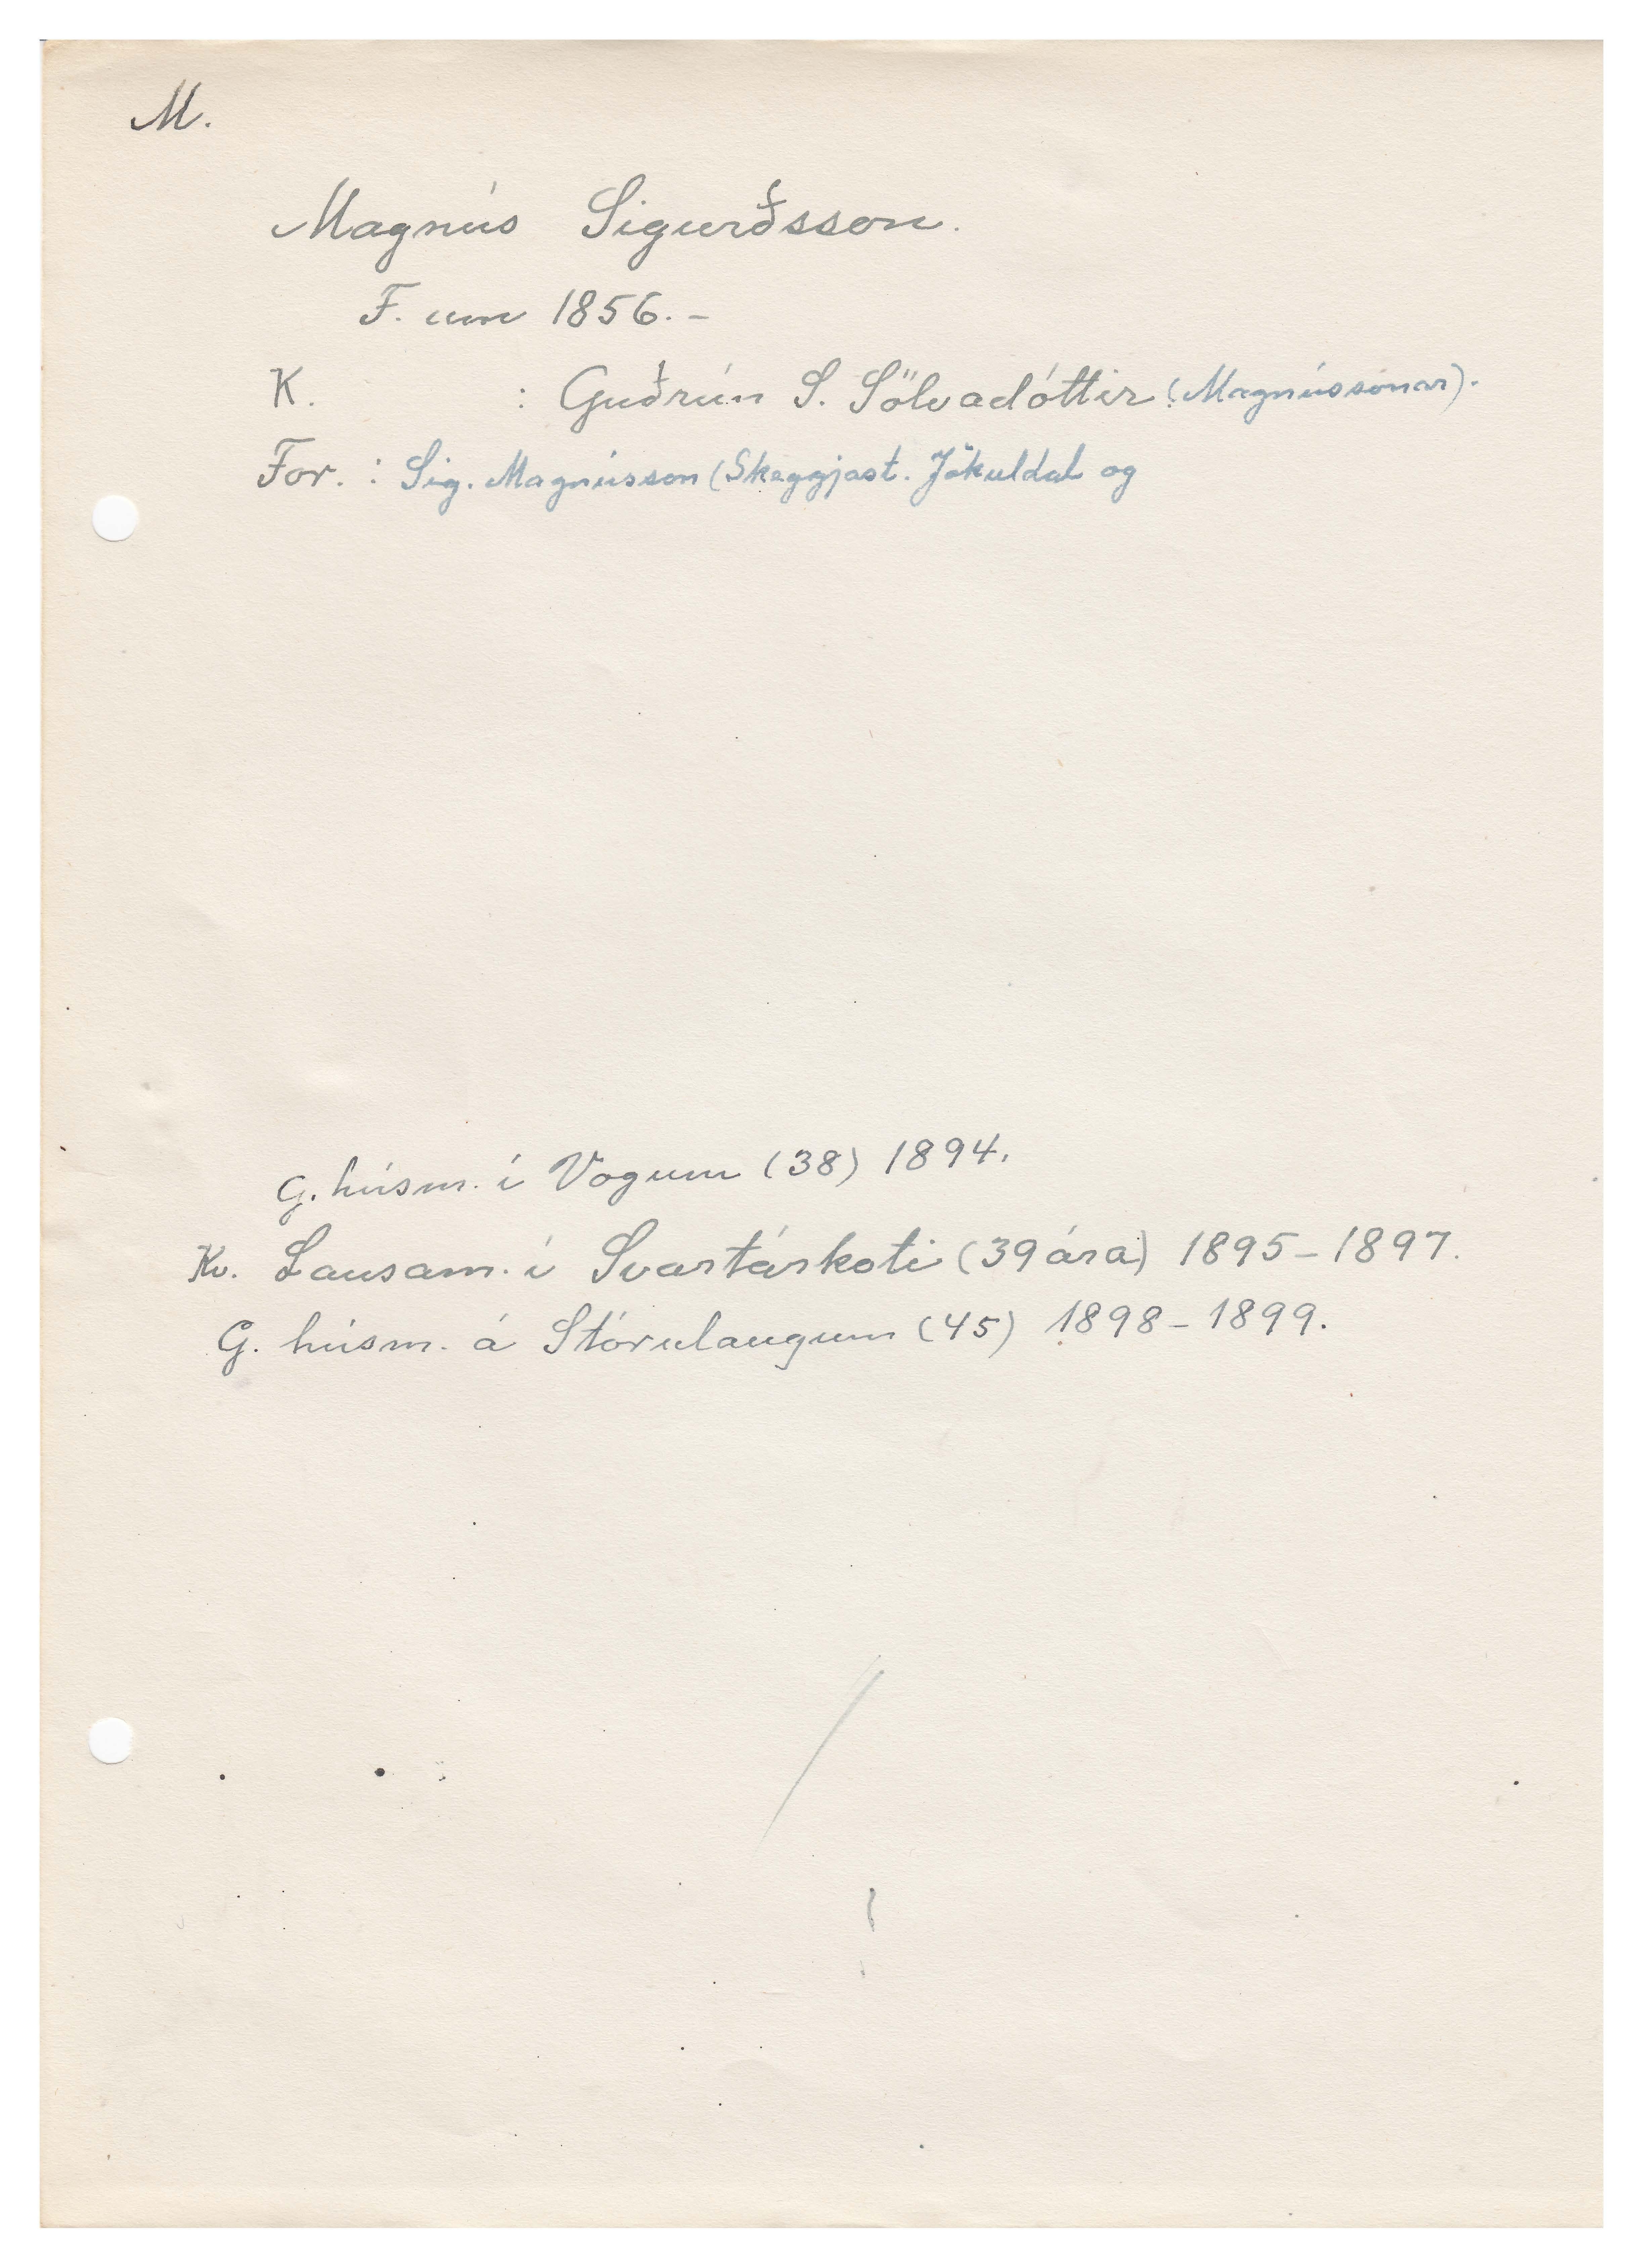 M.
Magnús Sigurðsson.
F. um 1856.-
K. : Guðrún S. Sölvadóttir (Magnússonar).
For. : Sig. Magnússon (Skeggjast. Jökuldal og
G. húsm. í Vogum (38) 1894.
Kv. Lausam. í Svartárkoti (39 ára) 1895-1897.
G. húsm. á Stórulaugum (45) 1898-1899.